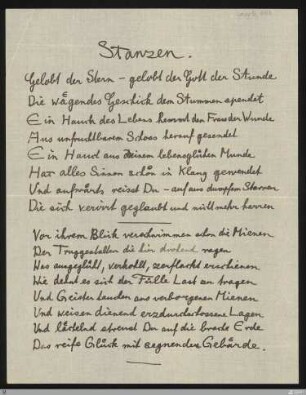 Stanzen.
Gelobt der Stern – gelobt der Gott der Stunde
Die wägendes Geschick dem Stummen spendet
Ein Hauch des Lebens hemmt den Frau der Wunde
Aus unfruchtbarem Schoos herauf gesendet
Ein Hauch aus Deinem lebensglühen Munde
Hat alles Sinnen schön in Klang gewendet
Und aufwärts reisst Du – auf aus dumpfem Starren
Die sich verirrt geglaubt und müllt mehr harren
Vor ihrem Blick verschwimmen schon die Mienen
Der Truggestalten die hin drohend ragen
Was ausgeglüht, verkohlt, zerflackt erschienen
Wie dehnt es sich der Fülle Last zu tragen
Und Geister tauchen aus verborgenen Mienen
Und weisen dienend erzdurchschossene Lagen
Und lächelnd streust Du auf die braache Erde
Das reife Glück mit segnender Gebärde.